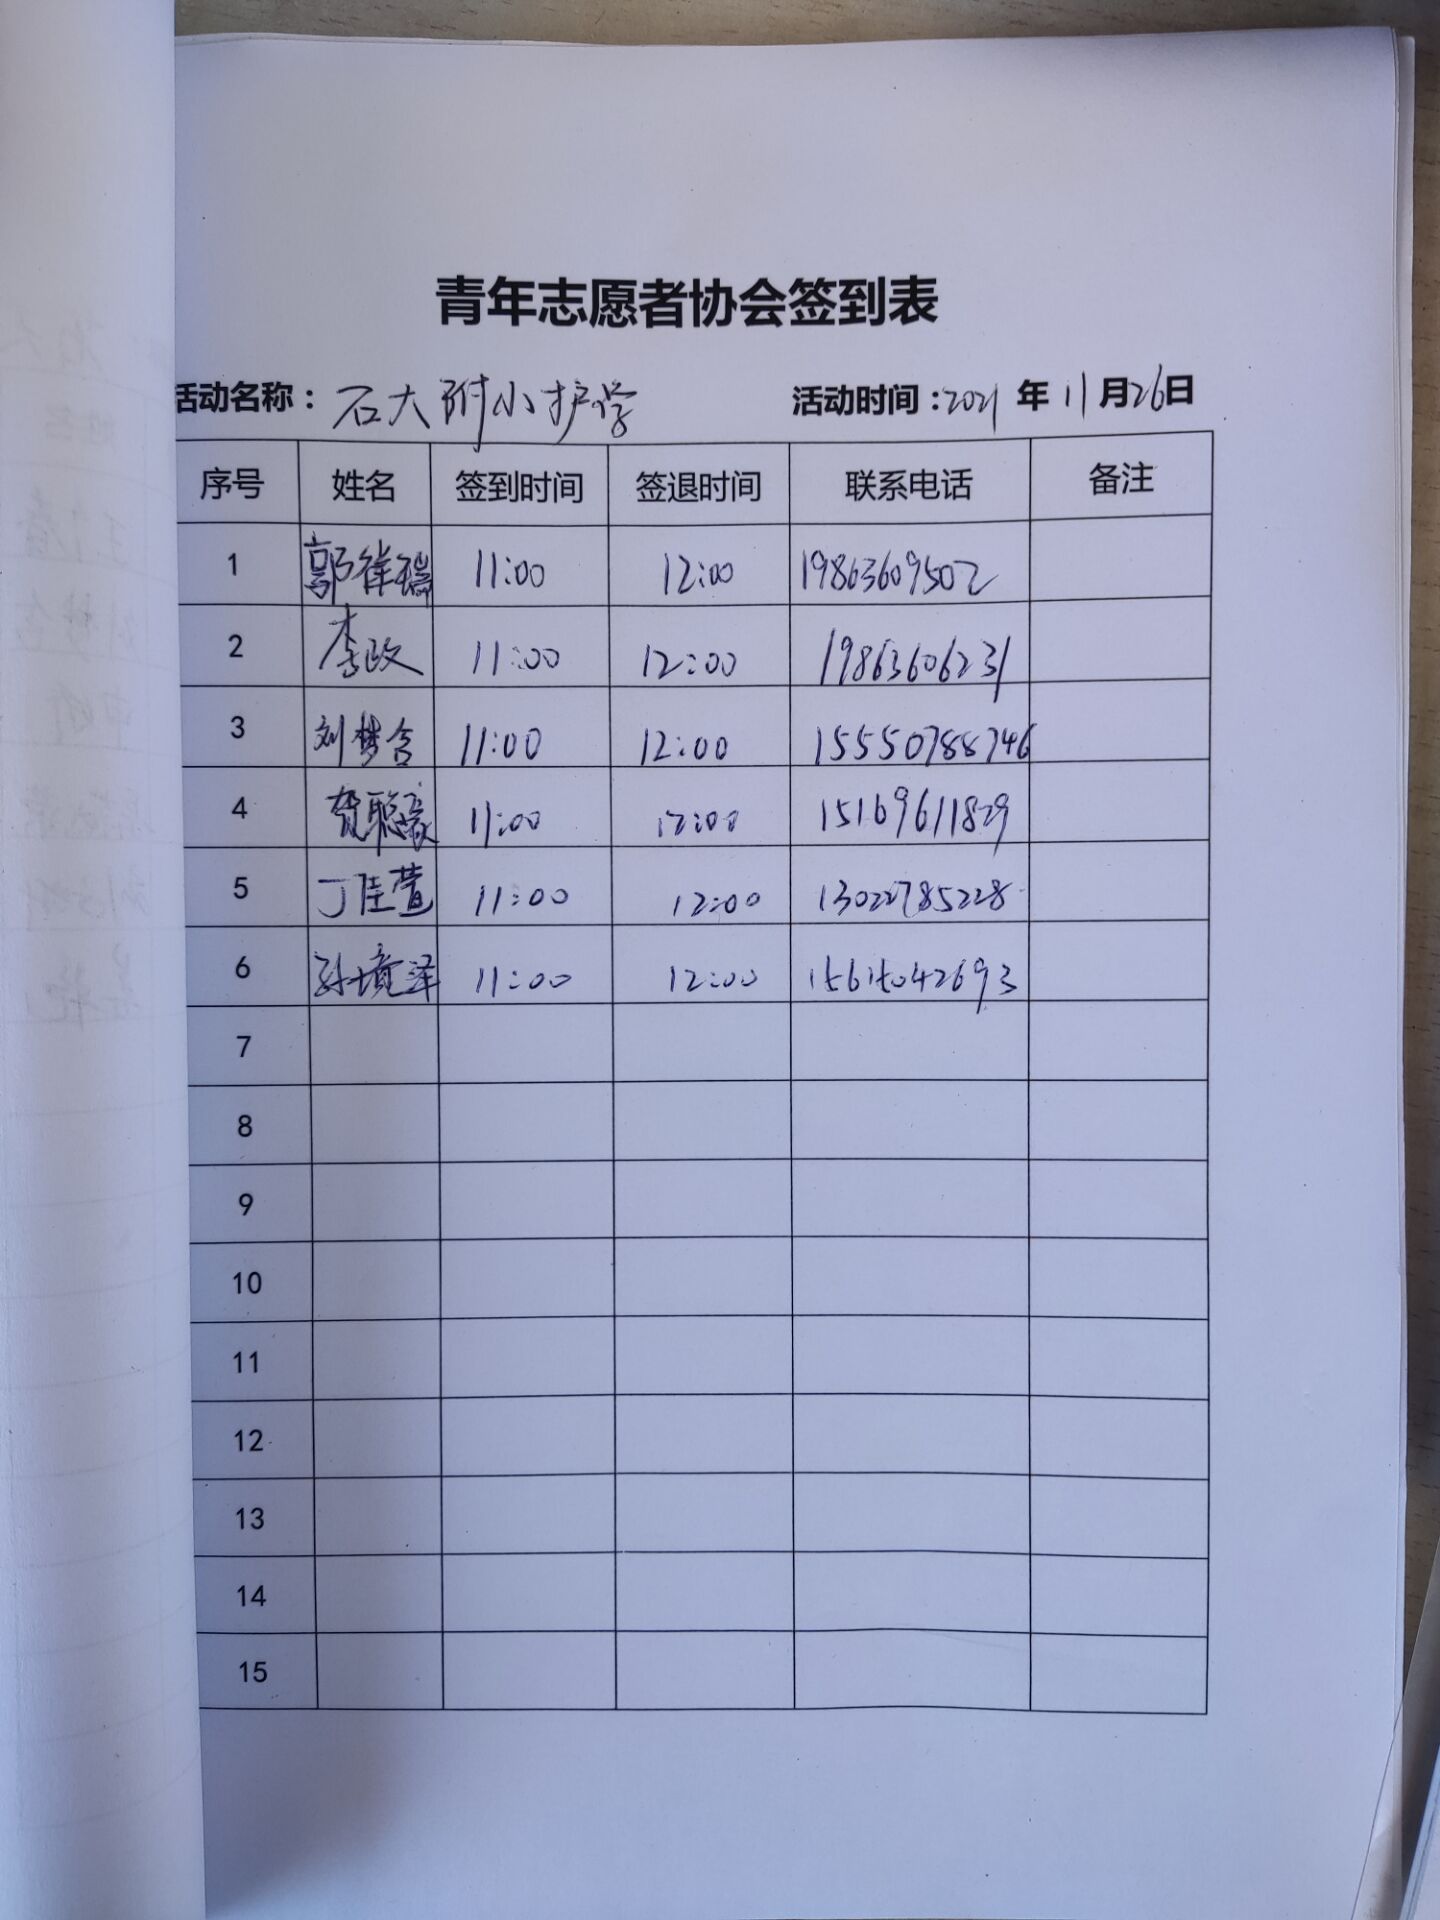 青年志愿者协会签到表
活动名称：石大附小护学 活动时间：2021年11月26日
序号 姓名 签到时间 签退时间 联系电话 备注
1 郭 瑞 11:00 12:00 19863609502
2 李政 11:00 12:00 19863606231
3 刘梦含 11:00 12:00 15550788746
4 贺聪豪 11:00 12:00 15169611829
5 丁佳萱 11:00 12:00 13022785228
6 孙境泽 11:00 12:00 15615042693
7
8
9
10
11
12
13
14
15